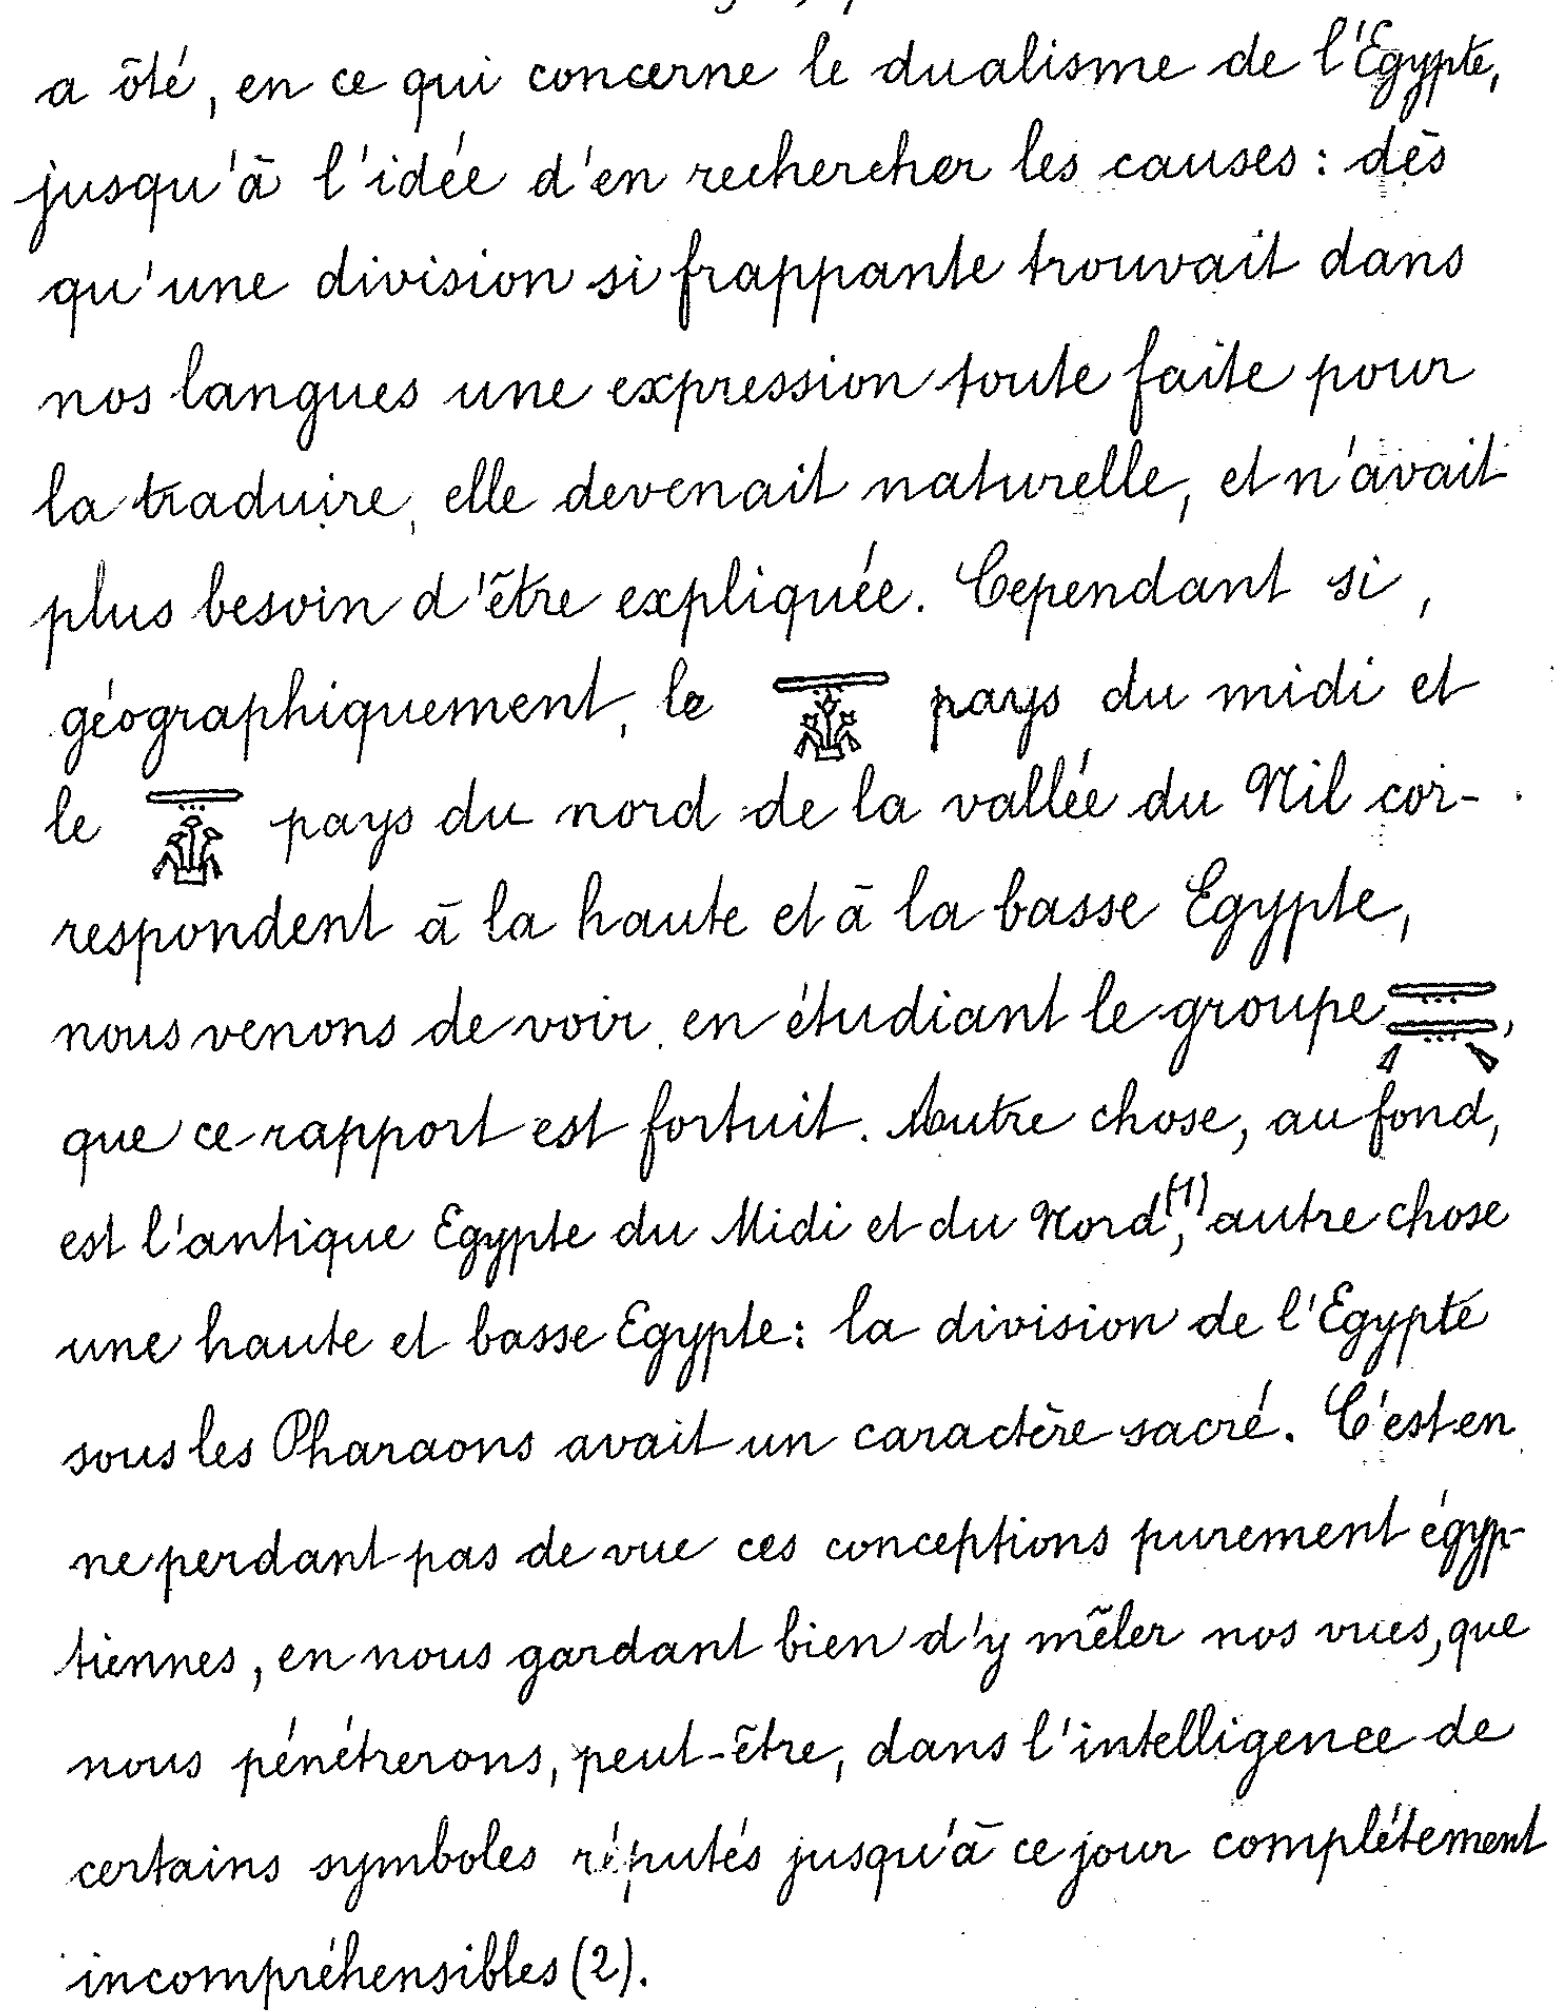 a ôté, en ce qui concerne le dualisme de l'Egypte,
jusqu'à l'idée d'en rechercher les causes : dès
qu'une division si frappante trouvait dans
nos langues une expression toute faite pour
la traduire, elle devenait naturelle, et n'avait
plus besoin d'être expliquée. Cependant si,
géographiquement, le pays du midi et
le pays du nord de la vallée du Nil cor-
respondent à la haute et à la basse Egypte,
nous venons de voir, en étudiant le groupe ,
que ce rapport est fortuit. Autre chose, au fond,
est l'antique Egypte du Midi et du Nord(1), autre chose
une haute et basse Egypte : la division de l'Egypte
sous les Pharaons avait un caractère sacré. C'est en
ne perdant pas de vue ces conceptions purement égyp-
tiennes, en nous gardant bien d'y mêler nos vues, que
nous pénétrerons, peut-être, dans l'intelligence de
certains symboles réputés jusqu'à ce jour complétement
incompréhensibles (2).